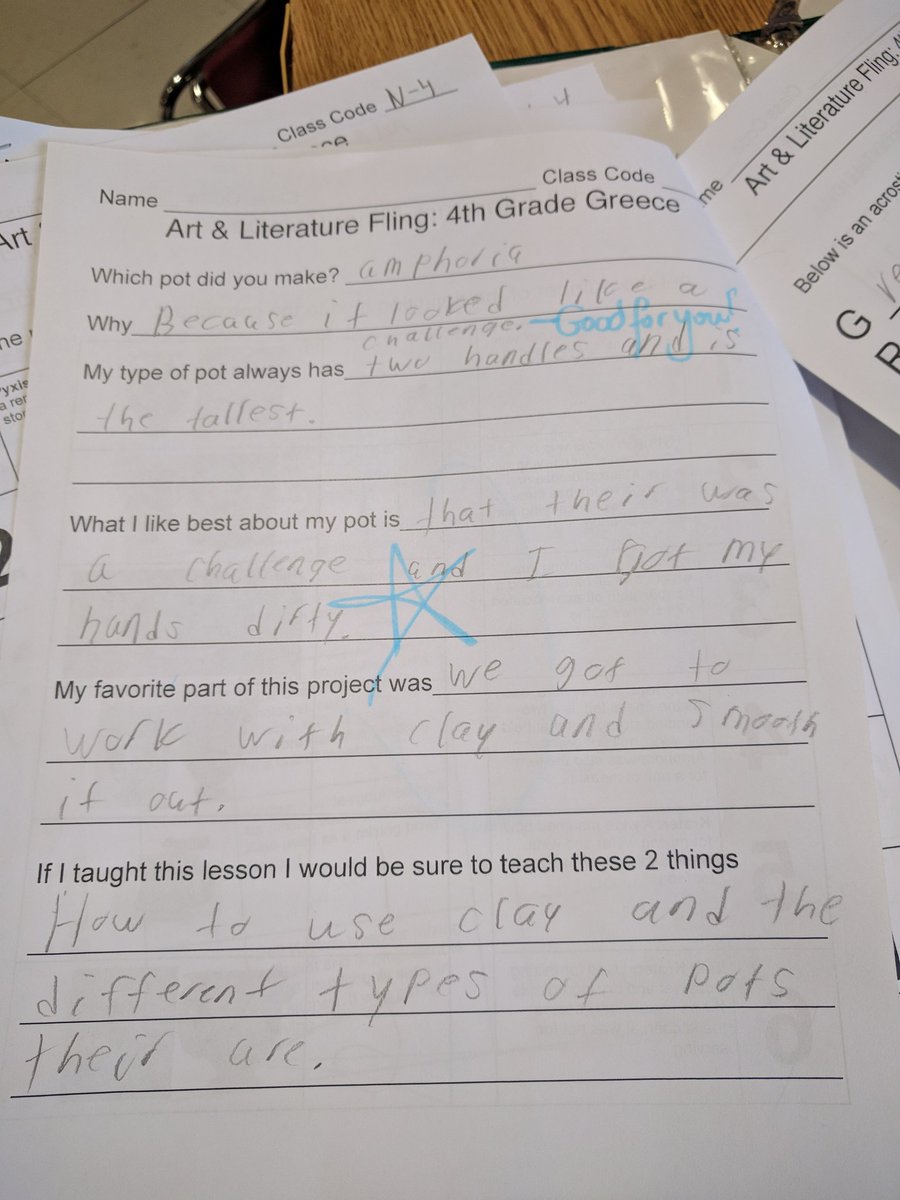 Class Code N-4
Name Class Code
Art & Literature Fling: 4th Grade Greece
Which pot did you make? amphoria
Why Because it looked like a
challenge. -Good for you!
My type of pot always has two handles and is
the tallest.
What I like best about my pot is that their was
a challenge and I got my
hands dirty.
My favorite part of this project was we got to
work with clay and smooth
it out.
If I taught this lesson I would be sure to teach these 2 things
How to use clay and the
different types of pots
their are.
Art & Literature Fling:
Below is an acrosti
G